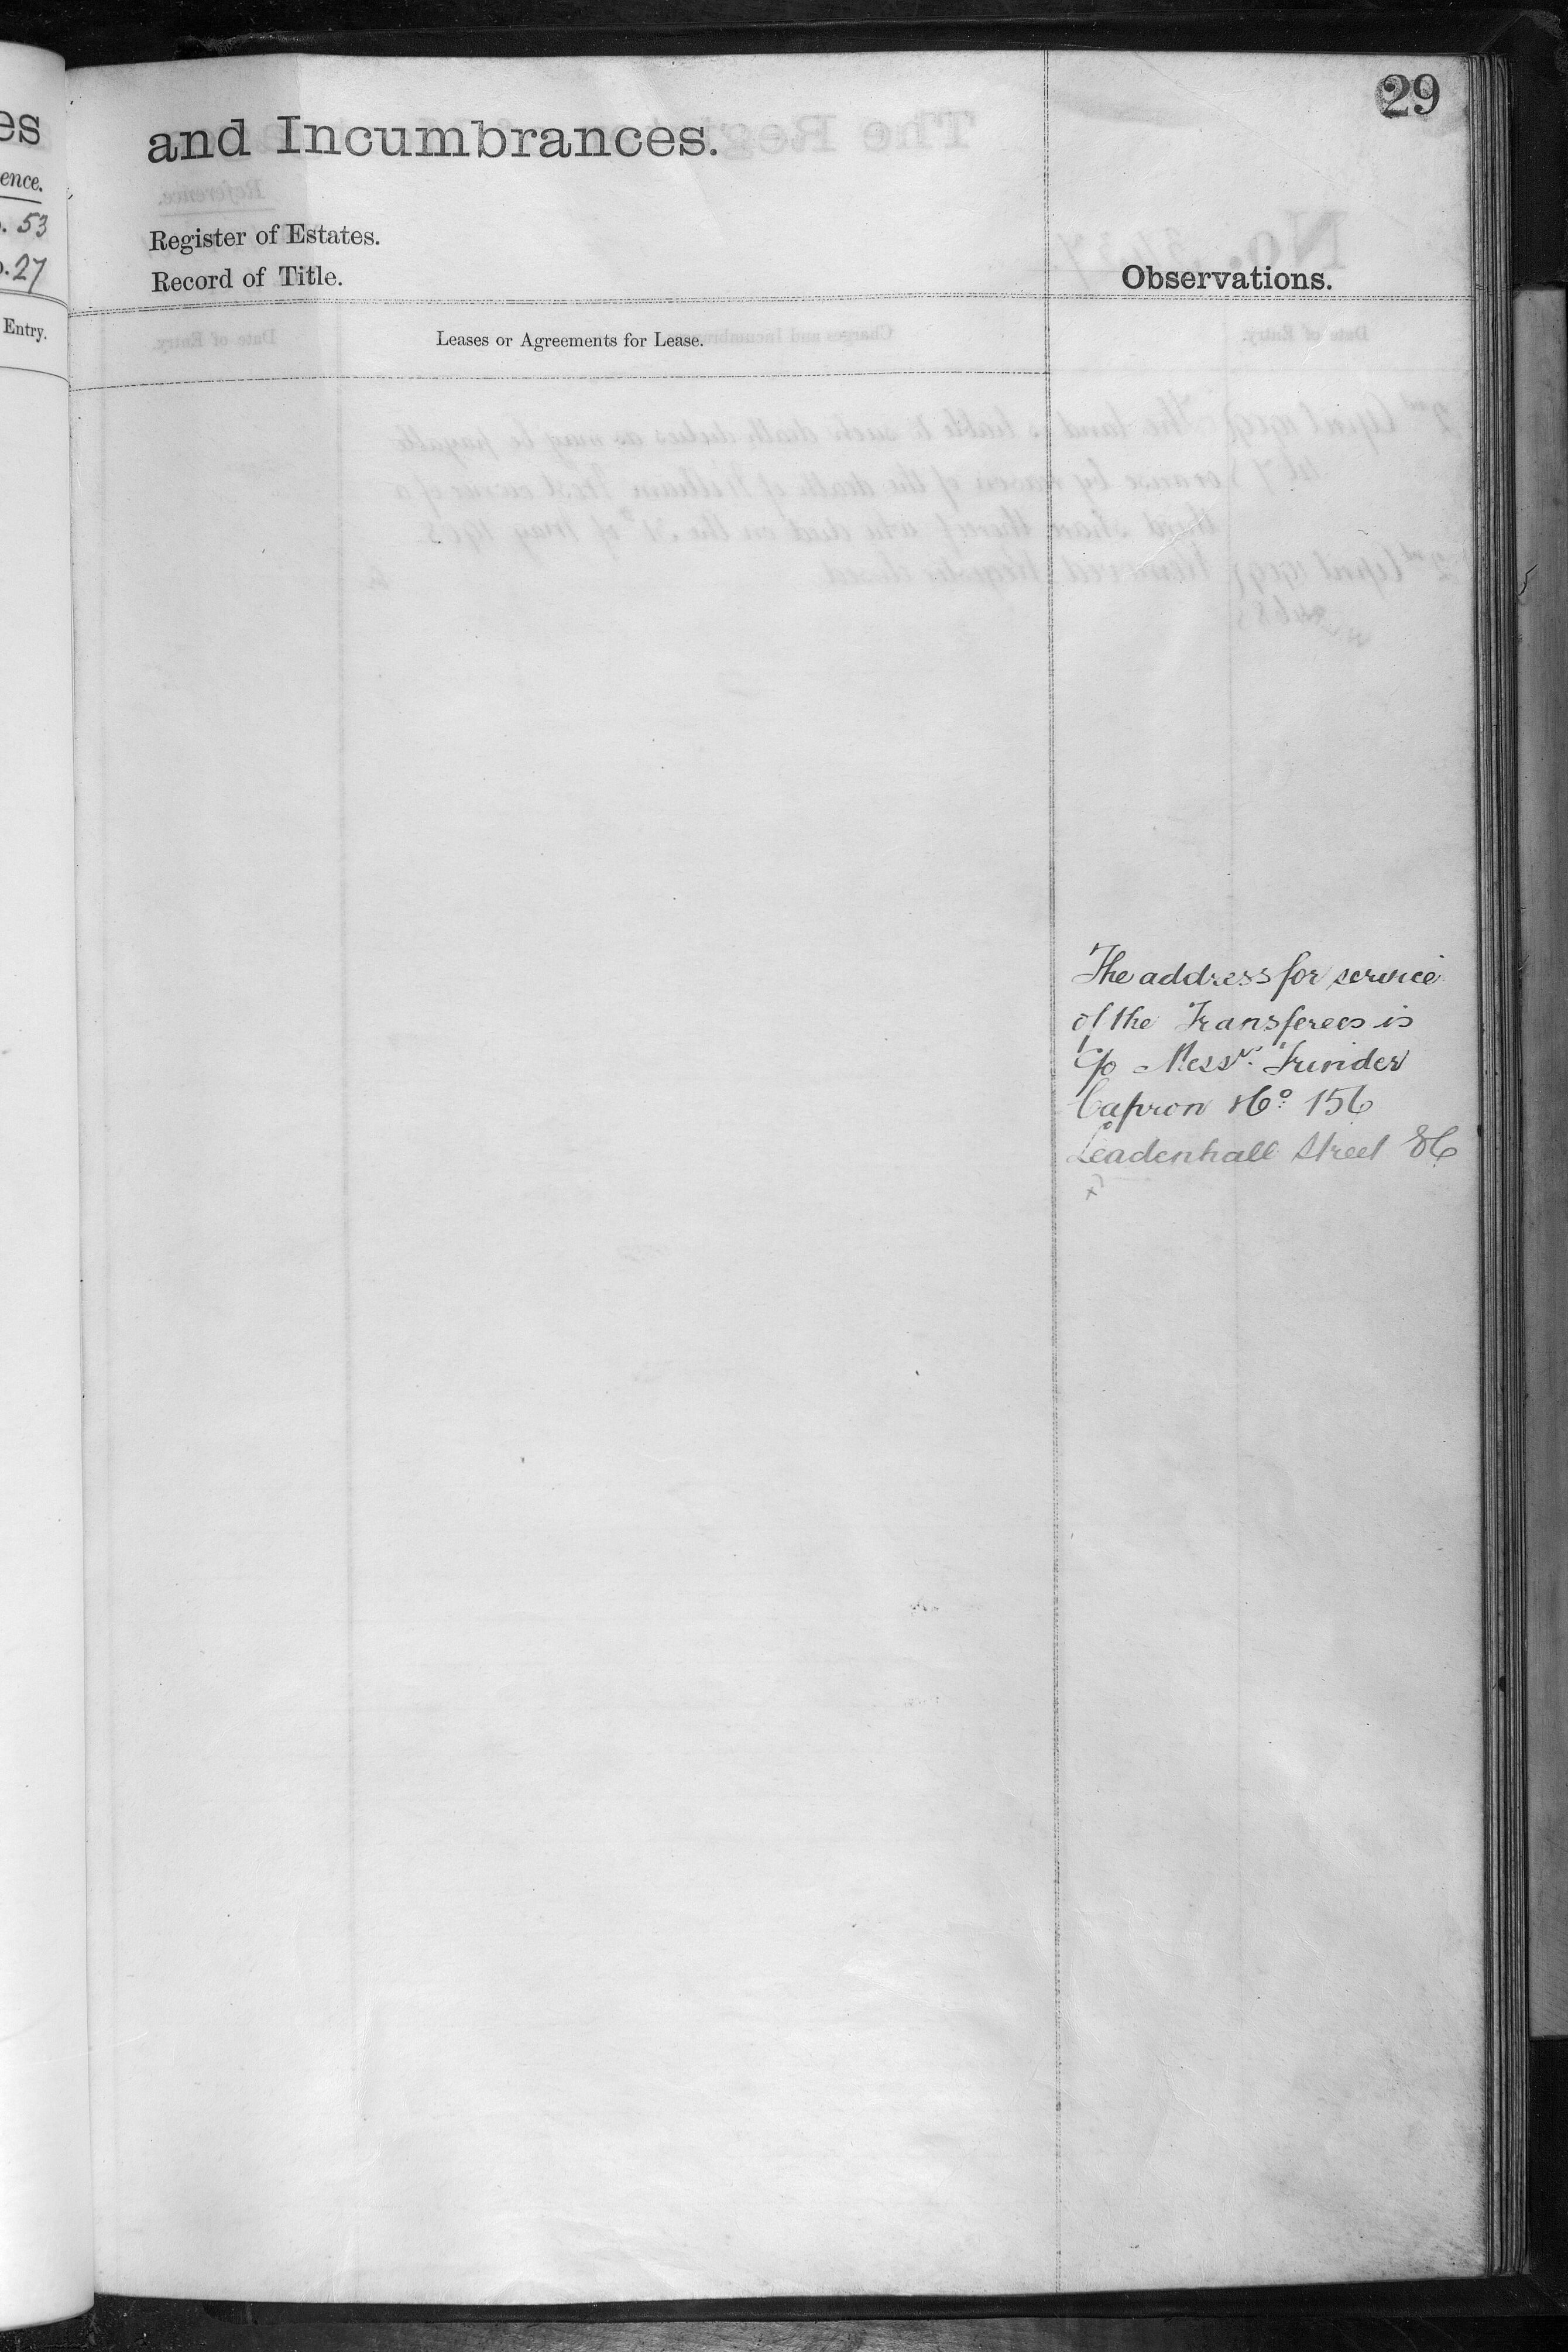 es
ence.
. 53
o. 27
Entry.
29
and Incumbrances.
Register of Estates.
Record of Title.
Observations.
Leases or Agreements for Lease.
The address for service
of the Transferees is
c/o Messrs. Trinder
Capron & Co. 156
Leadenhall Street EC